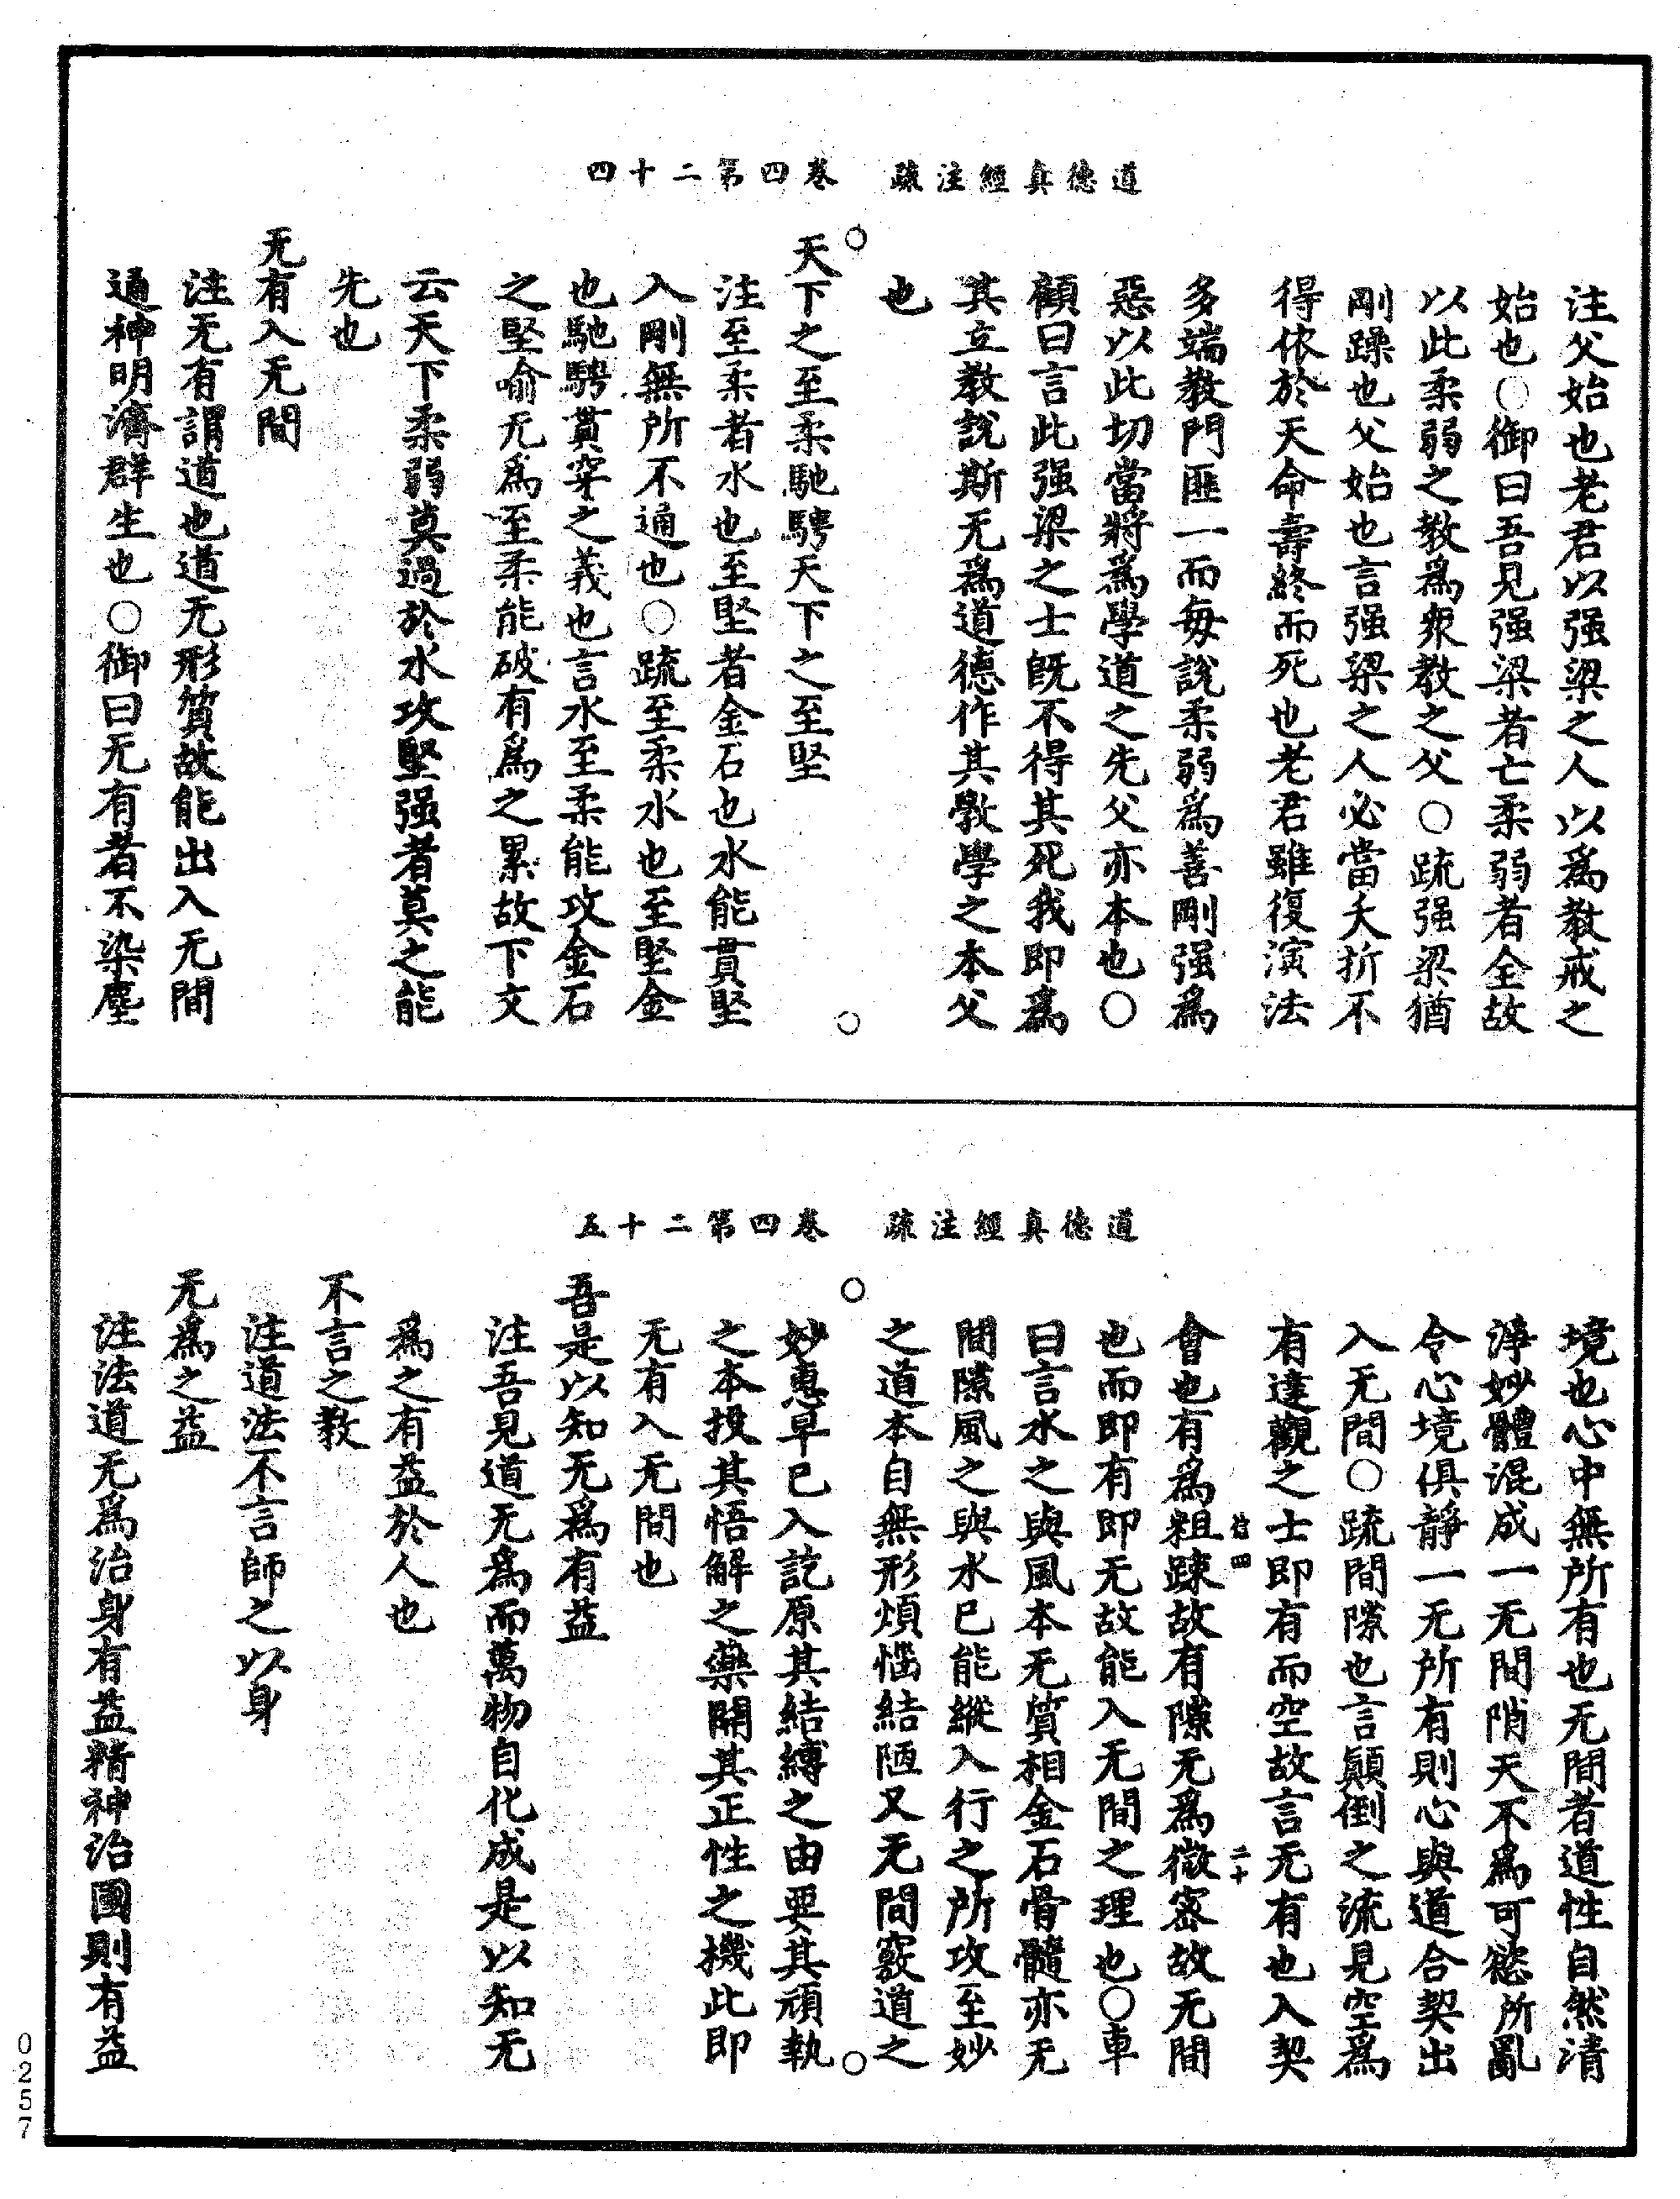 道德真經注疏　卷四第二十四
注父始也老君以强梁之人以爲教戒之
始也○御曰吾見强梁者亡柔弱者全故
以此柔弱之教爲衆教之父○疏强梁猶
剛躁也父始也言强梁之人必當夭折不
得依於天命壽終而死也老君雖復演法
多端教門匪一而每說柔弱爲善剛强爲
惡以此切當將爲學道之先父亦本也○
顧曰言此强梁之士旣不得其死我即爲
其立教說斯无爲道德作其斆學之本父
也
天下之至柔馳騁天下之至堅
注至柔者水也至堅者金石也水能貫堅
入剛無所不通也○疏至柔水也至堅金
也馳騁貫穿之義也言水至柔能攻金石
之堅喻无爲至柔能破有爲之累故下文
云天下柔弱莫過於水攻堅强者莫之能
先也
无有入无間
注无有謂道也道无形質故能出入无間
通神明濟群生也○御曰无有者不染塵
道德真經注疏　卷四第二十五
境也心中無所有也无間者道性自然清
淨妙體混成一无間隙天不爲可慾所亂
令心境俱靜一无所有則心與道合契出
入无間○疏間隙也言顛倒之流見空爲
有達觀之士即有而空故言无有也入契
會也有爲粗踈故有隙无爲微密故无間
也而即有即无故能入无間之理也○車
曰言水之與風本无質相金石骨髓亦无
間隙風之與水已能縱入行之所攻至妙
之道本自無形煩惱結陋又无間竅道之
妙惠早已入訖原其結縛之由要其頑執
之本投其悟解之藥開其正性之機此即
无有入无間也
吾是以知无爲有益
注吾見道无爲而萬物自化成是以知无
爲之有益於人也
不言之教
注道法不言師之以身
无爲之益
注法道无爲治身有益精神治國則有益
0257